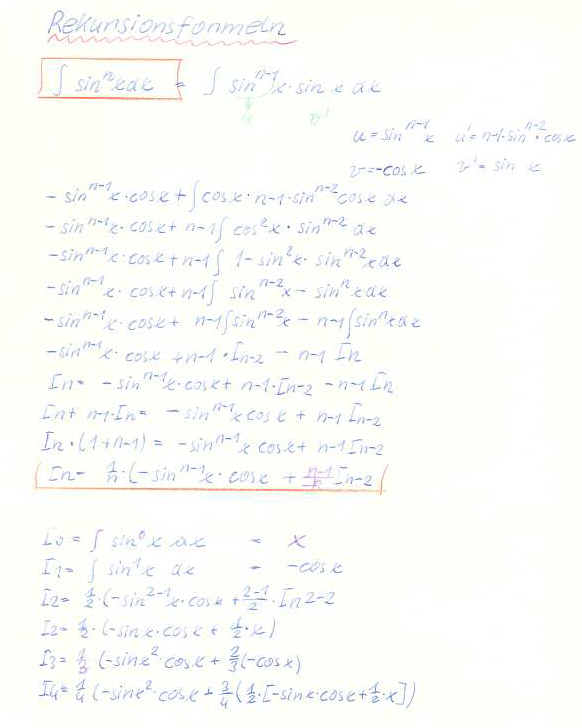 Rekursionsformeln
∫ sinⁿx dx = ∫ sinⁿ⁻¹x · sin x dx
u v'
u = sinⁿ⁻¹x u' = n-1·sinⁿ⁻²·cos x
v = -cos x v' = sin x
- sinⁿ⁻¹x · cos x + ∫ cos x · n-1 · sinⁿ⁻² cos x dx
- sinⁿ⁻¹x · cos x + n-1 ∫ cos²x · sinⁿ⁻² dx
- sinⁿ⁻¹x · cos x + n-1 ∫ 1 - sin²x · sinⁿ⁻²x dx
- sinⁿ⁻¹x · cos x + n-1 ∫ sinⁿ⁻²x - sinⁿx dx
- sinⁿ⁻¹x · cos x + n-1 ∫ sinⁿ⁻²x - n-1 ∫ sinⁿx dx
- sinⁿ⁻¹x · cos x + n-1 · In-2 - n-1 In
In = - sinⁿ⁻¹x · cos x + n-1 · In-2 - n-1 In
In + n-1 · In = - sinⁿ⁻¹x cos x + n-1 In-2
In · (1+n-1) = - sinⁿ⁻¹x cos x + n-1 In-2
In = 1/n · (- sinⁿ⁻¹x · cos x + n-1/n In-2
I0 = ∫ sin⁰x dx = x
I1 = ∫ sin¹x dx = -cos x
I2 = 1/2 · (- sin²⁻¹x · cos x + 2-1/2 · In2-2
I2 = 1/2 · (- sin x · cos x + 1/2 · x)
I3 = 1/3 (- sin x² · cos x + 2/3 (-cos x)
I4 = 1/4 (- sin x² · cos x + 3/4 (1/2 · [- sin x · cos x + 1/2 · x])